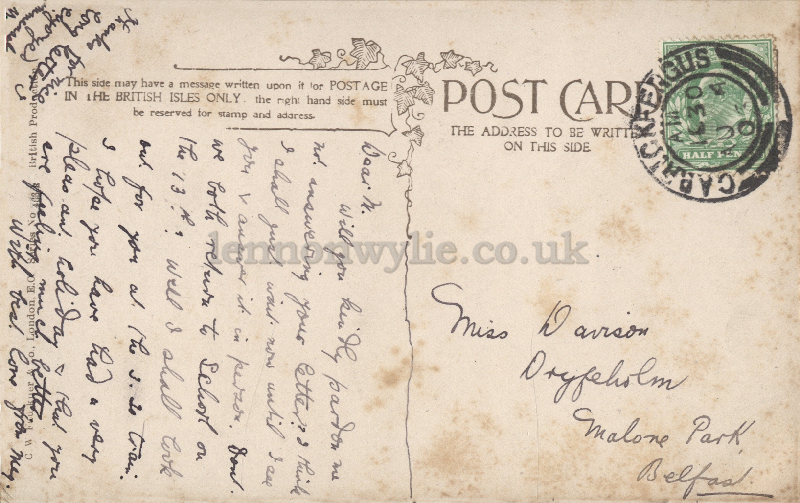 This side may have a message written upon it for POSTAGE
IN THE BRITISH ISLES ONLY, the right hand side must
be reserved for stamp and address.
POST CARD
THE ADDRESS TO BE WRITTEN
ON THIS SIDE.
CARRICKFERGUS
HALF PEN
Dear M.
Will you kindly pardon me
not answering your letter; I think
I shall just wait now until I see
you & answer it in person. Don't
we both return to School on
the 13th? Well I shall look
out for you at the train.
I hope you have had a very
pleasant holiday & that you
are feeling much better
With best love from
Thanks for
long letter
Miss Davison
Dryfeholm
Malone Park
Belfast
C. W. Faulkner & Co., London, E.C. Series No.
British Production
lennonwylie.co.uk